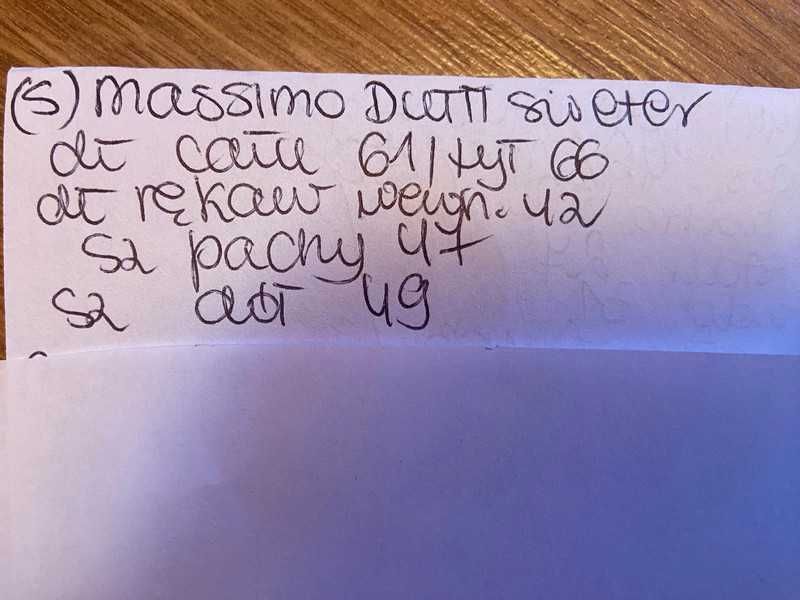 (S) Massimo Dutti sweter
dł całk 61/tył 66
dł rękaw wewn. 42
sz pachy 47
sz dół 49